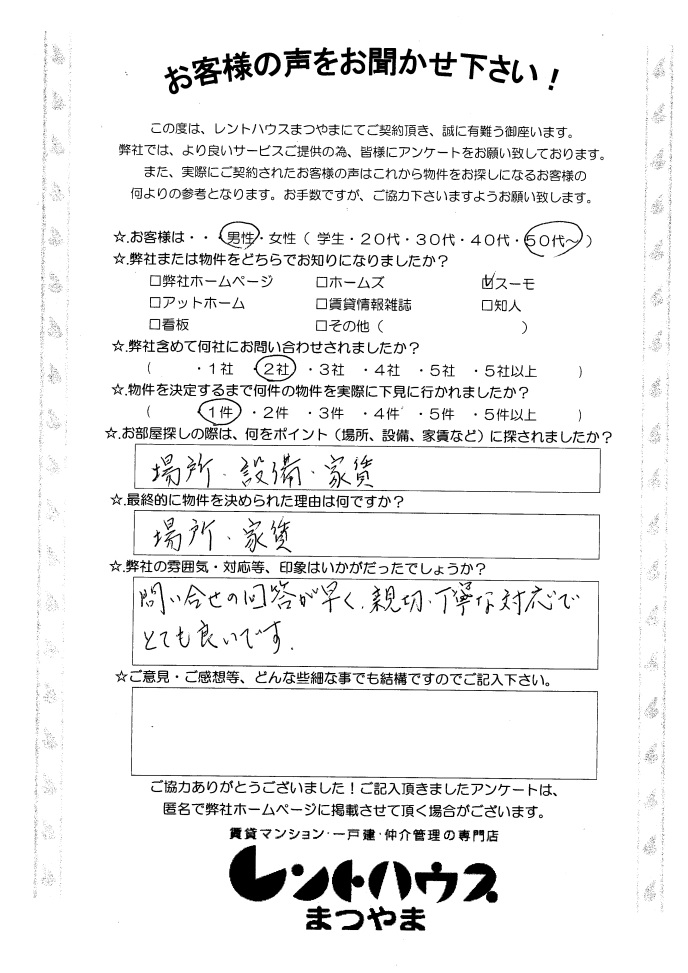 お客様の声をお聞かせ下さい！
この度は、レントハウスまつやまにてご契約頂き、誠に有難う御座います。
弊社では、より良いサービスご提供の為、皆様にアンケートをお願い致しております。
また、実際にご契約されたお客様の声はこれから物件をお探しになるお客様の
何よりの参考となります。お手数ですが、ご協力下さいますようお願い致します。
☆.お客様は・・・男性・女性（ 学生・20代・30代・40代・50代～ ）
☆.弊社または物件をどちらでお知りになりましたか？
□弊社ホームページ □ホームズ ☑スーモ
□アットホーム □賃貸情報雑誌 □知人
□看板 □その他（ ）
☆.弊社含めて何社にお問い合わせされましたか？
（ ・1社 ・2社 ・3社 ・4社 ・5社 ・5社以上 ）
☆.物件を決定するまで何件の物件を実際に下見に行かれましたか？
（ ・1件 ・2件 ・3件 ・4件 ・5件 ・5件以上 ）
☆.お部屋探しの際は、何をポイント（場所、設備、家賃など）に探されましたか？
場所・設備・家賃
☆.最終的に物件を決められた理由は何ですか？
場所・家賃
☆.弊社の雰囲気・対応等、印象はいかがだったでしょうか？
問い合せの回答が早く、親切・丁寧な対応で
とても良いです.
☆ご意見・ご感想等、どんな些細な事でも結構ですのでご記入下さい。
ご協力ありがとうございました！ご記入頂きましたアンケートは、
匿名で弊社ホームページに掲載させて頂く場合がございます。
賃貸マンション・一戸建・仲介管理の専門店
レントハウス
まつやま